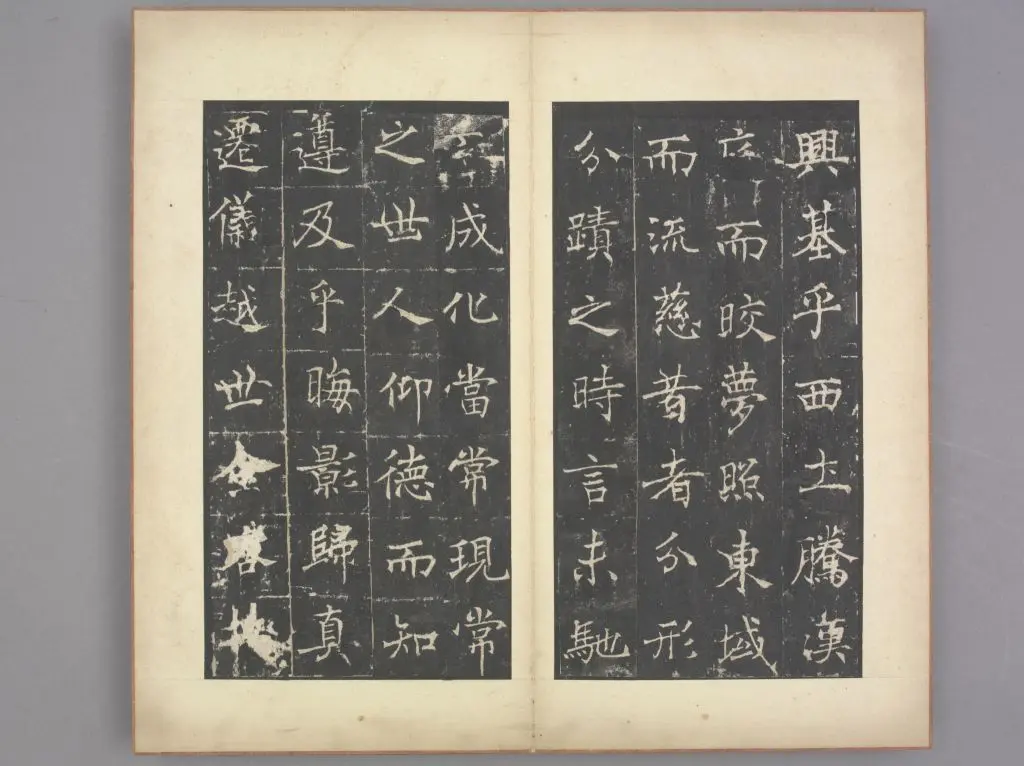 興基乎西土騰漢
而皎夢照東域
而流慈昔者分形
分蹟之時言未馳
成化當常現常
之世人仰德而知
遵及乎晦影歸真
遷儀越世金